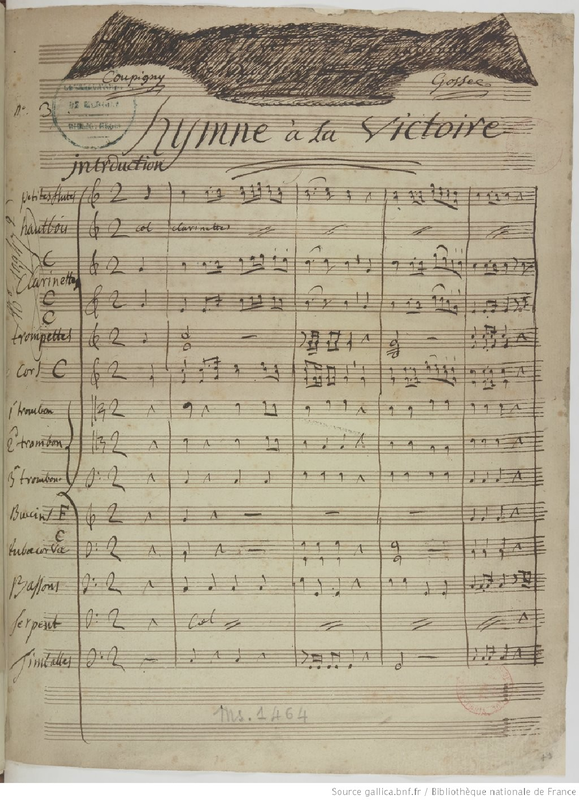 Coupigny Gossec
n.° 3
hymne à la Victoire
introduction
petites flutes
hautbois col clarinettes
C
Clarinettes
C
C
trompettes
Cors C
1er trombon
2e trombon
3e trombon
Buccins F
C
tuba corva
Bassons
Serpent Col
Timballes
Ms. 1464
Source gallica.bnf.fr / Bibliothèque nationale de France